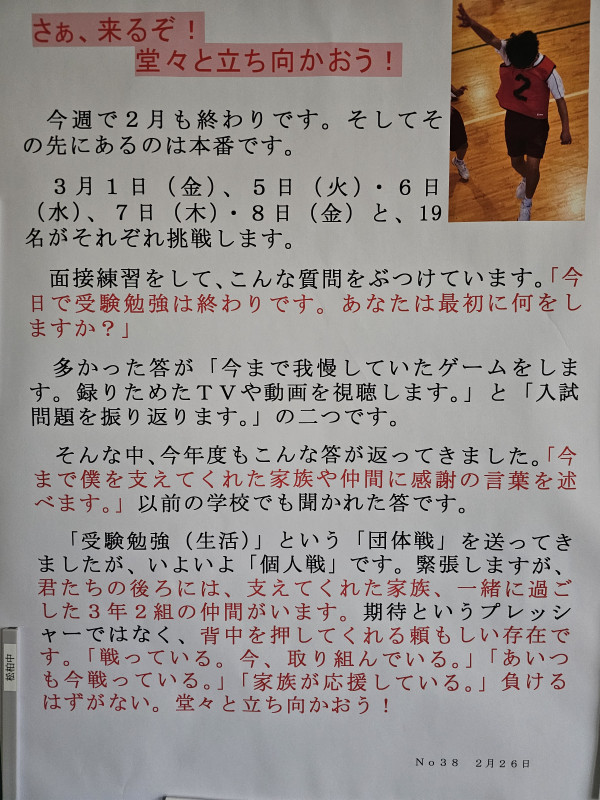 さぁ、来るぞ！
堂々と立ち向かおう！
2
今週で２月も終わりです。そしてそ
の先にあるのは本番です。
３月１日（金）、５日（火）・６日
（水）、７日（木）・８日（金）と、19
名がそれぞれ挑戦します。
面接練習をして、こんな質問をぶつけています。「今
日で受験勉強は終わりです。あなたは最初に何をし
ますか？」
多かった答が「今まで我慢していたゲームをしま
す。録りためたＴＶや動画を視聴します。」と「入試
問題を振り返ります。」の二つです。
そんな中、今年度もこんな答が返ってきました。「今
まで僕を支えてくれた家族や仲間に感謝の言葉を述
べます。」以前の学校でも聞かれた答です。
「受験勉強（生活）」という「団体戦」を送ってき
ましたが、いよいよ「個人戦」です。緊張しますが、
君たちの後ろには、支えてくれた家族、一緒に過ご
した３年２組の仲間がいます。期待というプレッシ
ャーではなく、背中を押してくれる頼もしい存在で
す。「戦っている。今、取り組んでいる。」「あいつ
も今戦っている。」「家族が応援している。」負ける
はずがない。堂々と立ち向かおう！
Ｎｏ３８　２月２６日